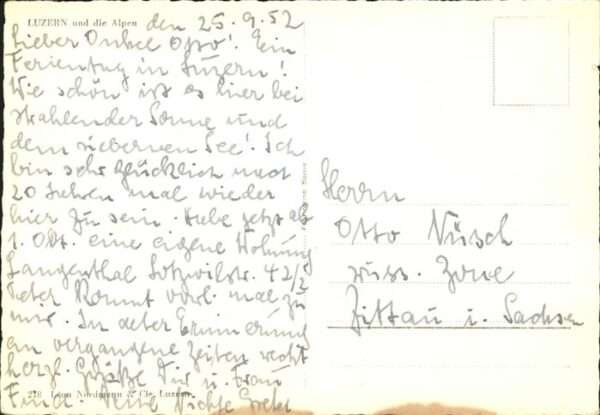 LUZERN und die Alpen
den 25.9.52
Lieber Onkel Otto! Ein
Ferientag in Luzern!
Wie schön ist es hier bei
strahlender Sonne und
dem See! Ich
bin sehr glücklich nach
20 Jahren mal wieder
hier zu sein. Habe jetzt ab
1. Okt. eine eigene Wohnung
Langenthal Lotzwilstr. 42/2
Peter kommt vorl. mal zu
mir. In alter Erinnerung
an vergangene Zeiten recht
herzl. Grüße Dir u. Frau
Deine Nichte Gretel
Leon Nordmann & Cie, Luzern
Herrn
Otto Nüsch
russ. Zone
Zittau i. Sachsen